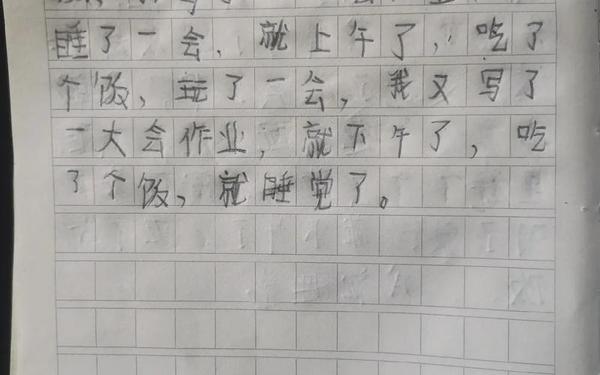 睡了一会，就上午了，吃了
个饭，玩了一会，我又写了
一大会作业，就下午了，吃
了个饭，就睡觉了。